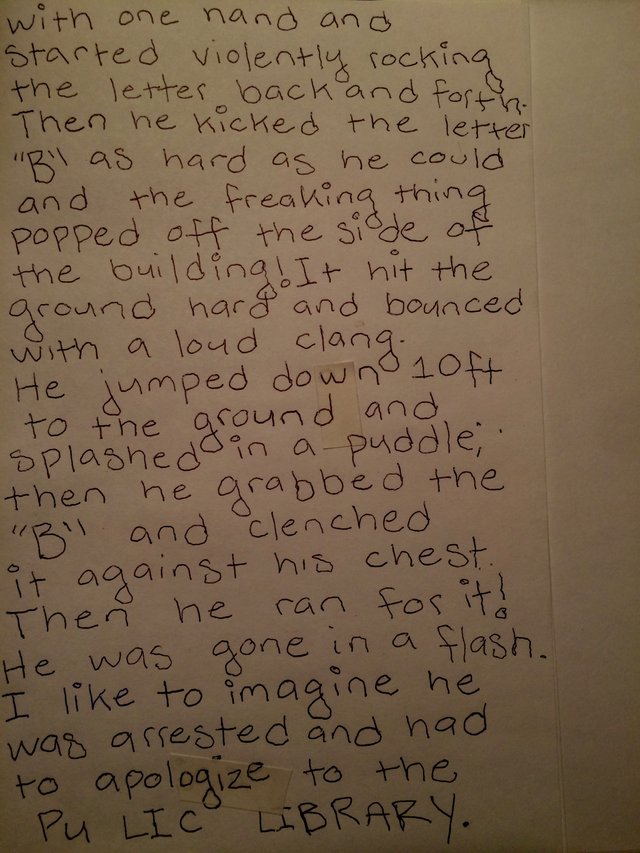 with one hand and
started violently rocking
the letter back and forth.
Then he kicked the letter
"B" as hard as he could
and the freaking thing
popped off the side of
the building! It hit the
ground hard and bounced
with a loud clang.
He jumped down 10ft
to the ground and
splashed in a puddle;
then he grabbed the
"B" and clenched
it against his chest.
Then he ran for it!
He was gone in a flash.
I like to imagine he
was arrested and had
to apologize to the
PU LIC LiBRARY.